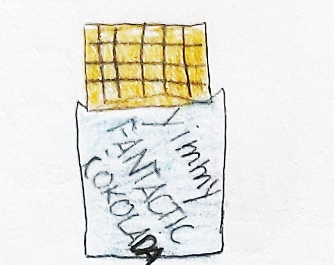 Yimmy
FANTACTIC
ČOKOLADA